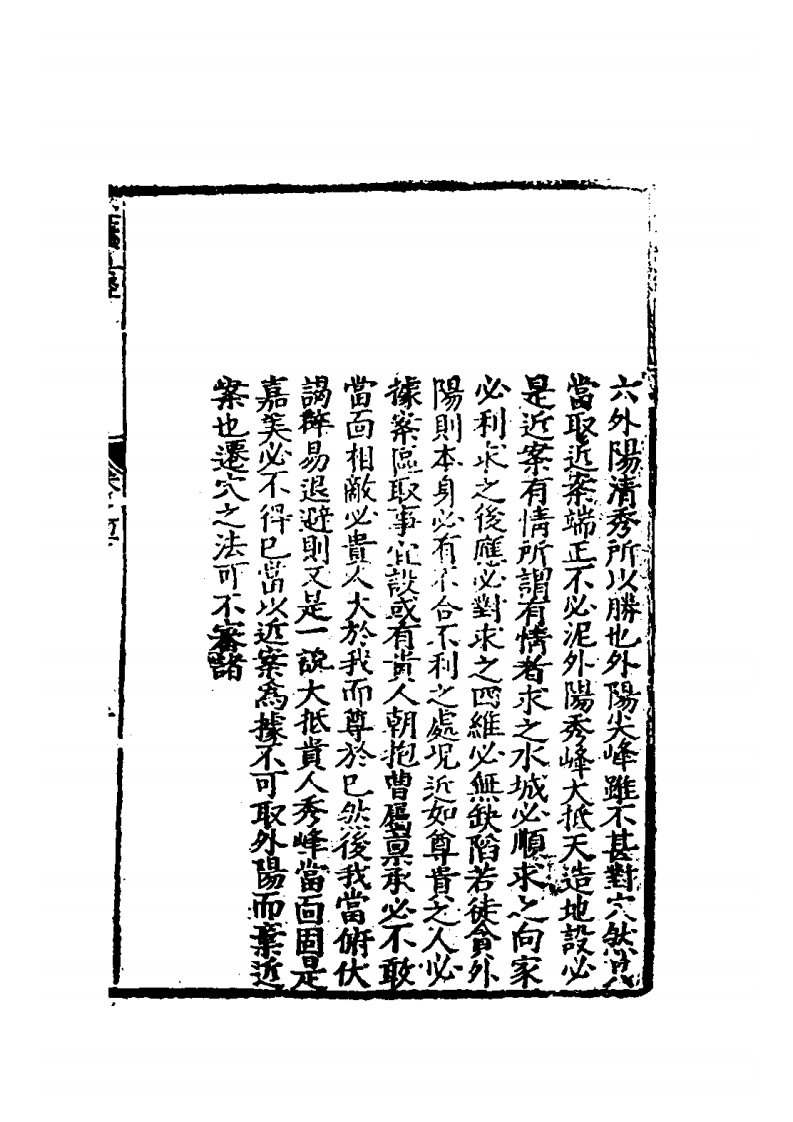 六外陽清秀所以勝也外陽尖峰雖不甚對穴然
當取近案端正不必泥外陽秀峰大抵天造地設必
是近案有情所謂有情者求之水城必順求之向家
必利求之後應必對求之四維必無缺陷若徒貪外
陽則本身必有不合不利之處況近如尊貴之人必
據案區取事宜設或有貴人朝抱曹屬稟承必不敢
當面相敵必貴人大於我而尊於已然後我當俯伏
謁拜易退避則又是一說大抵貴人秀峰當面固是
嘉美必不得已當以近案為據不可取外陽而棄近
案也遷穴之法可不審諸